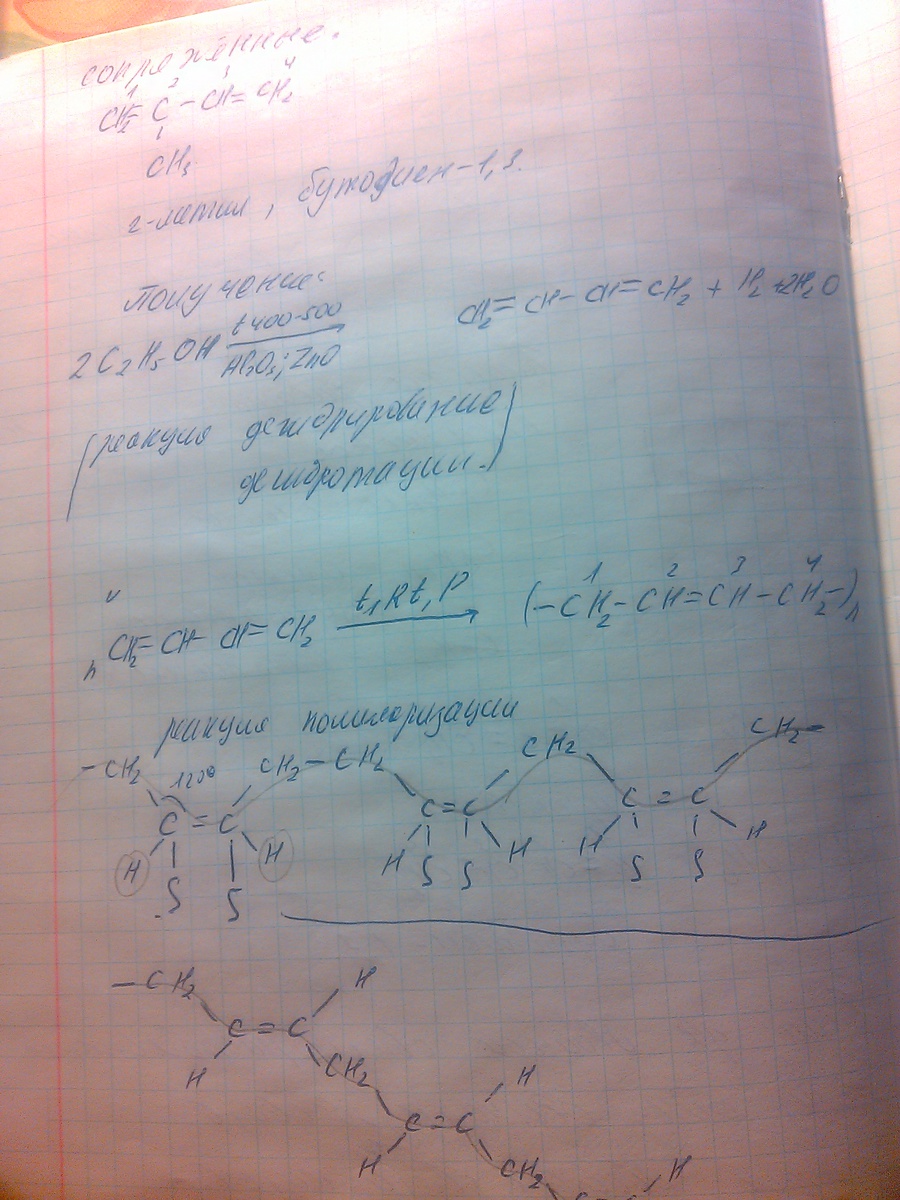 сопряжённые.
1 2 3 4
CH2=C-CH=CH2
CH3
2-метил, бутодиен-1,3.
Получение:
2C2H5OH t 400-500 Al2O3; ZnO CH2=CH-CH=CH2 + H2 + 2H2O
(реакция дегидрирование
дегидротации.)
1 2 3 4
n CH2=CH-CH=CH2 t, Kt, P (-CH2-CH=CH-CH2-)n
реакция полимеризации
-CH2 120° CH2-CH2 CH2 CH2-
C=C C=C C=C
H H H H H H
S S S S S S
-CH2 H
C=C
H CH2 H
C=C
H CH2 H